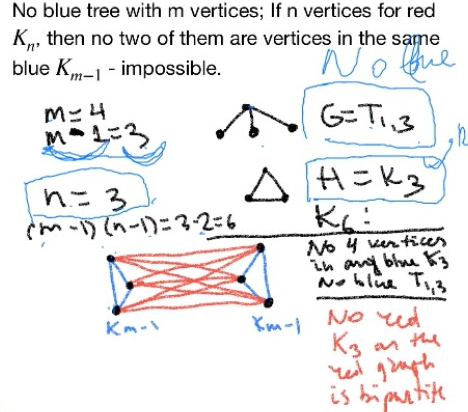 No blue tree with m vertices; If n vertices for red
Kₙ, then no two of them are vertices in the same
blue Kₘ₋₁ - impossible.
No blue
m=4
m-1=3
G=T₁,₃
n=3
H=K₃
(m-1)(n-1)=3·2=6
K₆:
No 4 vertices
in any blue K₃
No blue T₁,₃
Kₘ₋₁
Kₘ₋₁
No red
K₃ as the
red graph
is bipartite